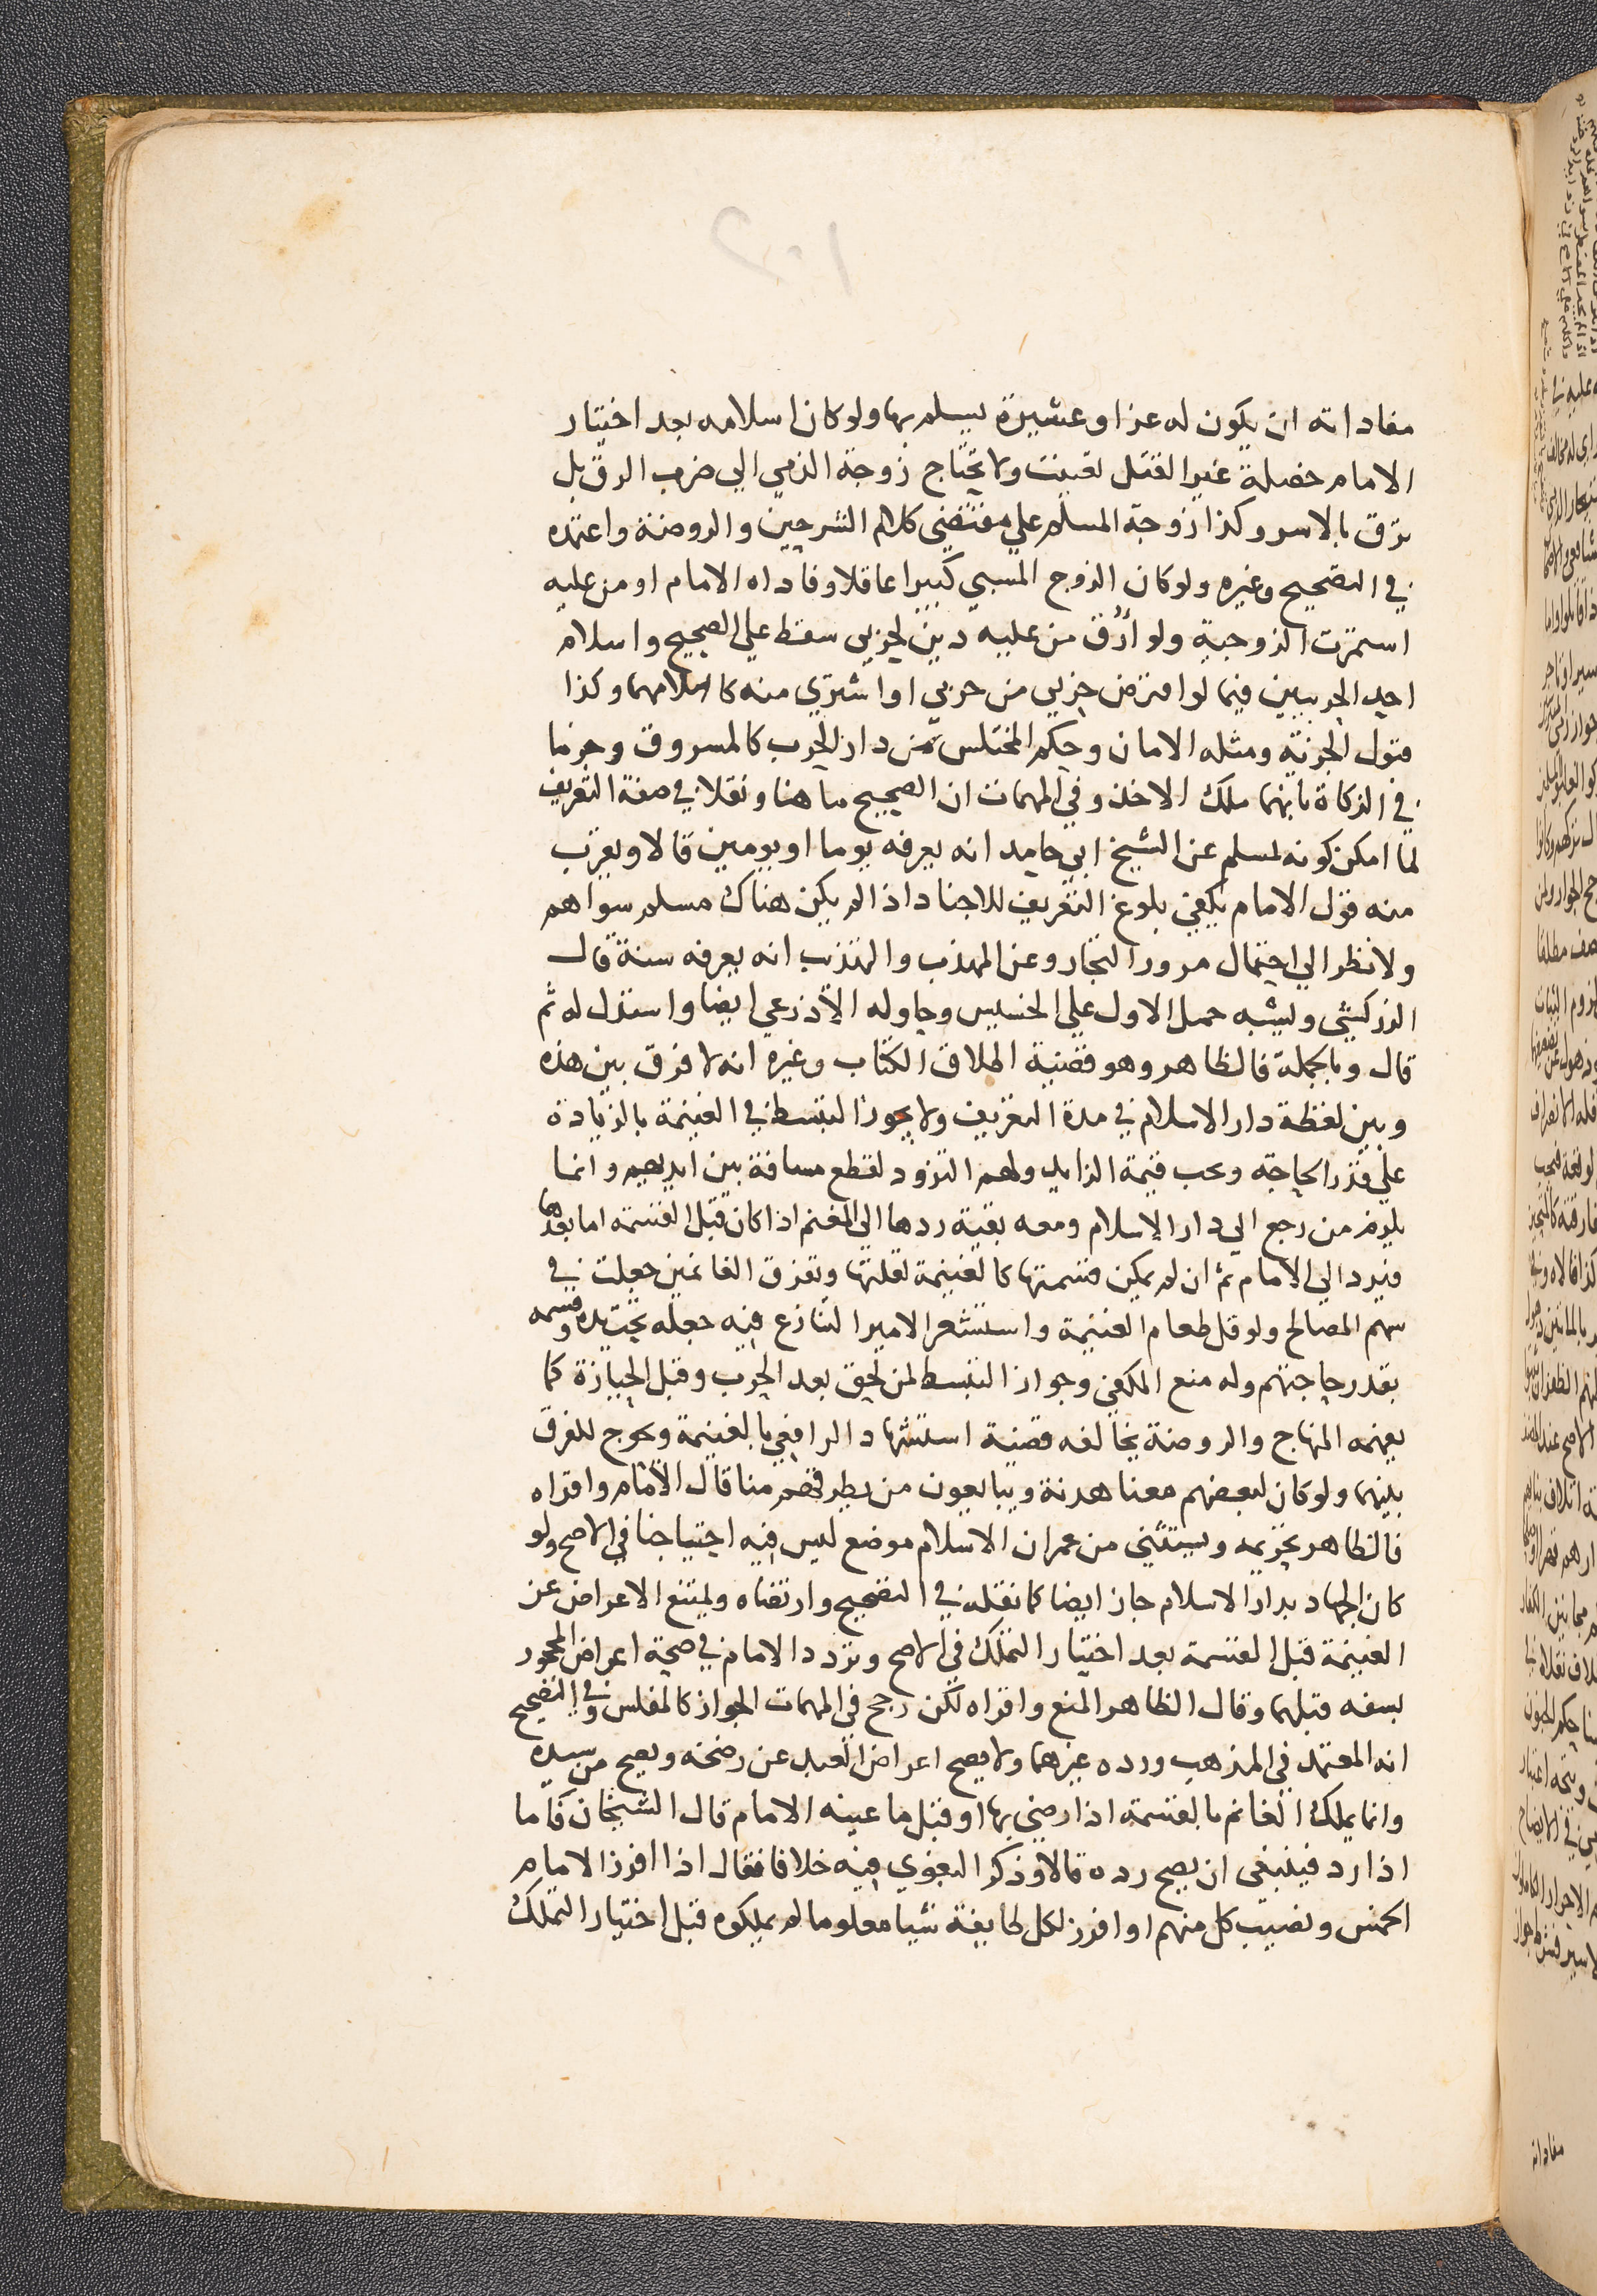 مفاداته ان يكون له عز او عشيرة يسلم بها ولو كان اسلامه بعد اختيار
الامام خصلة غير القتل تعينت ولا تحتاج زوجة الذمي الى ضرب الرق بل
ترق بالاسر وكذا زوجة المسلم علي مقتضي كلام الشرحين والروضة واعتمده
في التصحيح وغيره ولو كان الزوج المسبي كبيرا عاقلا وفاداه الامام او من عليه
استمرت الزوجية ولو أُرق من عليه دين لحربي سقط علي الصحيح واسلام
احد الحربيين فيما لو اقترض حربي من حربي او اشترى منه كاسلامهما وكذا
قبول الجزية ومثله الامان وحكم المختلس من دار الحرب كالمسروق وجزما
في الزكاة بانهما ملك الاخذ وفي المهمات ان الصحيح ما هنا ونقلا في صفة التعريف
لما امكن كونه لمسلم عن الشيخ ابي حامد انه يعرفه يوما او يومين قالا ويقرب
منه قول الامام يكفي بلوغ التعريف للاجناد اذا لم يكن هناك مسلم سواهم
ولا نظر الي احتمال مرور التجار وعن المهذب والتهذيب انه يعرفه سنة قال
الزركشي ويشبه حمل الاول علي الخسيس وحاوله الاذرعي ايضا واستدل له ثم
قال وبالجملة فالظاهر وهو قضية اطلاق الكتاب وغيره انه لا فرق بين هذه
وبين لقطة دار الاسلام في مدة التعريف ولا يجوز التبسط في الغنيمة بالزيادة
علي قدر الحاجة وتجب قيمة الزايد ولهم التزود لقطع مسافة بين ايديهم وانما
يلزم من رجع الي دار الاسلام ومعه بقية ردها الي المغنم اذا كان قبل القسمة اما بعدها
فيرد الي الامام ثم ان لم يمكن قسمتها كالغنيمة لقلتها وتفرق الغانمين جعلت في
سهم المصالح ولو قل طعام الغنيمة واستشعر الامير التنازع فيه جعله تحت يده وقسمه
بقدر حاجتهم وله منع المكفي وجواز التبسط لمن لحق بعد الحرب وقبل الحيازة كما
يفهمه المنهاج والروضة يخالفه قضية استشهاد الرافعي بالغنيمة ويحوج للفرق
بينهما ولو كان لبعضهم معنا هدنة ويبايعون من يطرقهم منا قال الامام واقراه
فالظاهر تحريمه ويستثني من عمران الاسلام موضع ليس فيه احتياجنا في الاصح ولو
كان الجهاد بدار الاسلام جاز ايضا كما نقله في التصحيح وارتضاه ويمتنع الاعراض عن
الغنيمة قبل القسمة بعد اختيار التملك في الاصح وتردد الامام في صحة اعراض المحجور
بسفه قبلها وقال الظاهر المنع واقراه لكن رجح في المهمات الجواز كالمفلس وفي التصحيح
انه المعتمد في المذهب ورده غيرهما ولا يصح اعراض العبد عن رضخه ويصح من سيده
وانما يملك الغانم بالقسمة اذا رضي بها او قبل ما عينه الامام قال الشيخان فاما
اذا رد فينبغي ان يصح رده قالا وذكر البغوي فيه خلافا فقال اذا افرز الامام
الخمس ونصيب كل منهم او افرز لكل طايفة شيا معلوما لم يملكوه قبل اختيار التملك